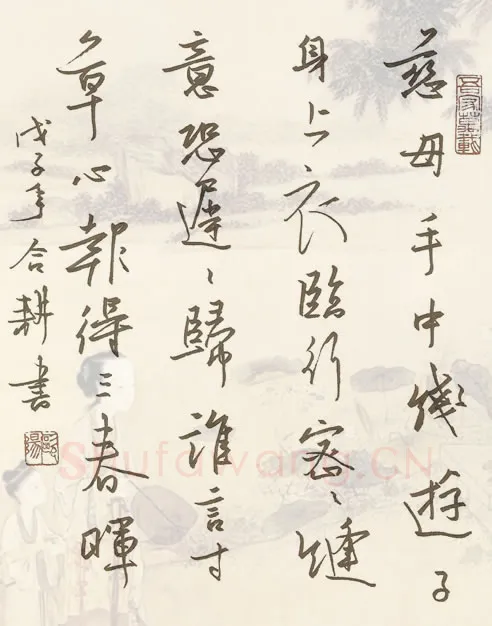 慈母手中綫遊子
身上衣臨行密〻縫
意恐遲〻歸誰言寸
草心報得三春暉
戊子年合耕書
Shufawang.CN